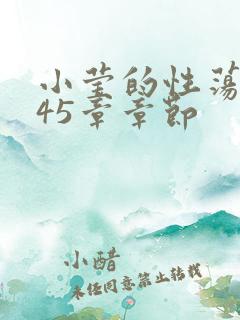 小莹的性荡
45章章节
小醋
未经同意禁止转载